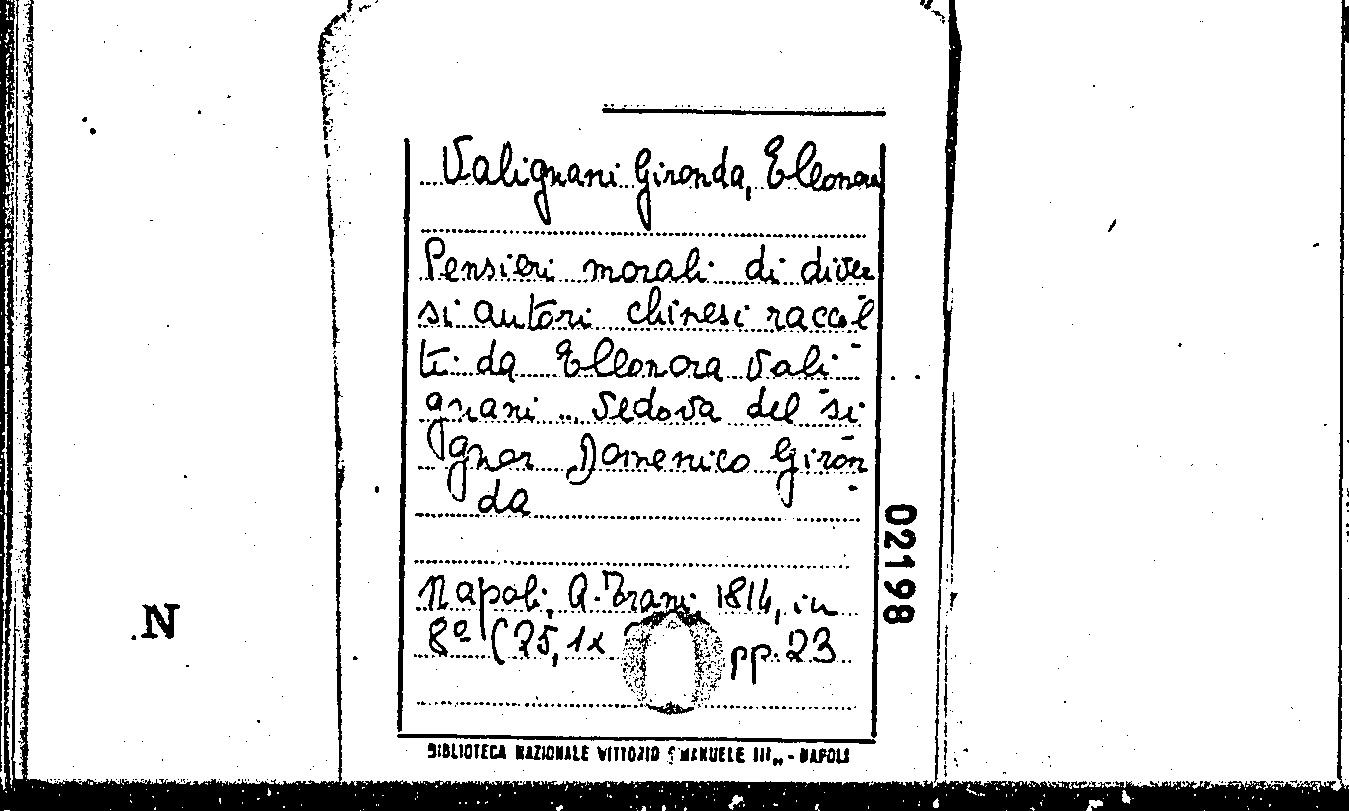 Valignani Gironda, Eleonora
Pensieri morali di diver
si autori chinesi raccol
ti da Eleonora Vali
gnani .. vedova del si
gnor Domenico Giron
da
Napoli, A. Trani, 1814, in
8º (25,1x pp. 23
BIBLIOTECA NAZIONALE VITTORIO EMANUELE III„ - NAPOLI
02198
.N